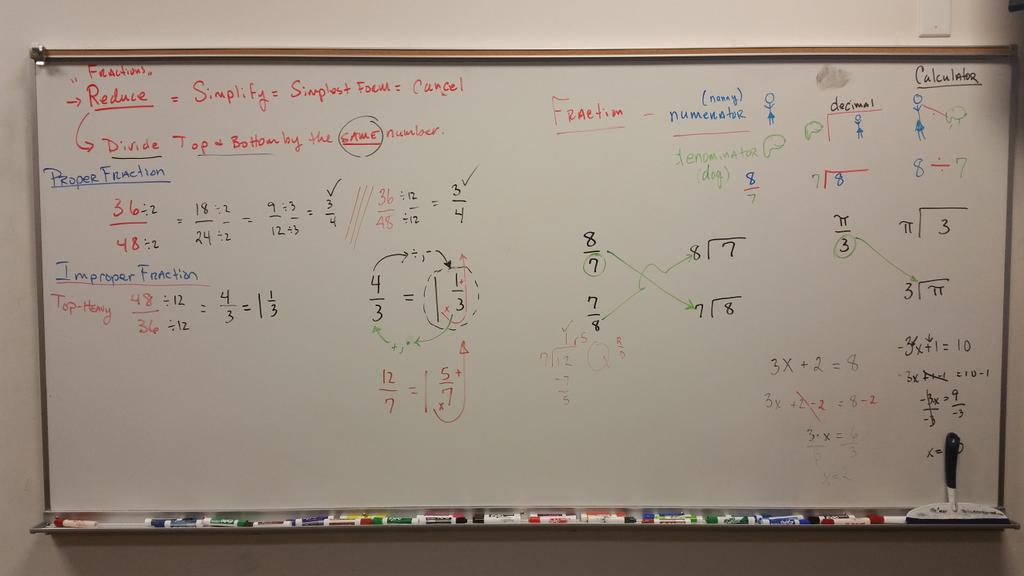 "Fractions"
→ Reduce = Simplify = Simplest Form = Cancel
→ Divide Top & Bottom by the SAME number.
Proper Fraction
36/48 ÷2/÷2 = 18/24 ÷2/÷2 = 9/12 ÷3/÷3 = 3/4 ✓ /// 36/48 ÷12/÷12 = 3/4 ✓
Improper Fraction
Top-Heavy 48/36 ÷12/÷12 = 4/3 = 1 1/3
÷, -
4/3 = 1 1/3
+
x
+, •
12/7 = 1 5/7
+
x
Fraction - (nanny)
numerator
denominator
(dog)
8/7
decimal
7⟌8
Calculator
8 ÷ 7
8/7 8⟌7
7/8 7⟌8
π/3 π⟌3
3⟌π
1 r 5
7⟌12
-7
5
3x + 2 = 8
3x + 2 - 2 = 8 - 2
3·x = 6
3
x = 2
-3x + 1 = 10
-3x + 1 - 1 = 10 - 1
-3x = 9
-3 -3
x =